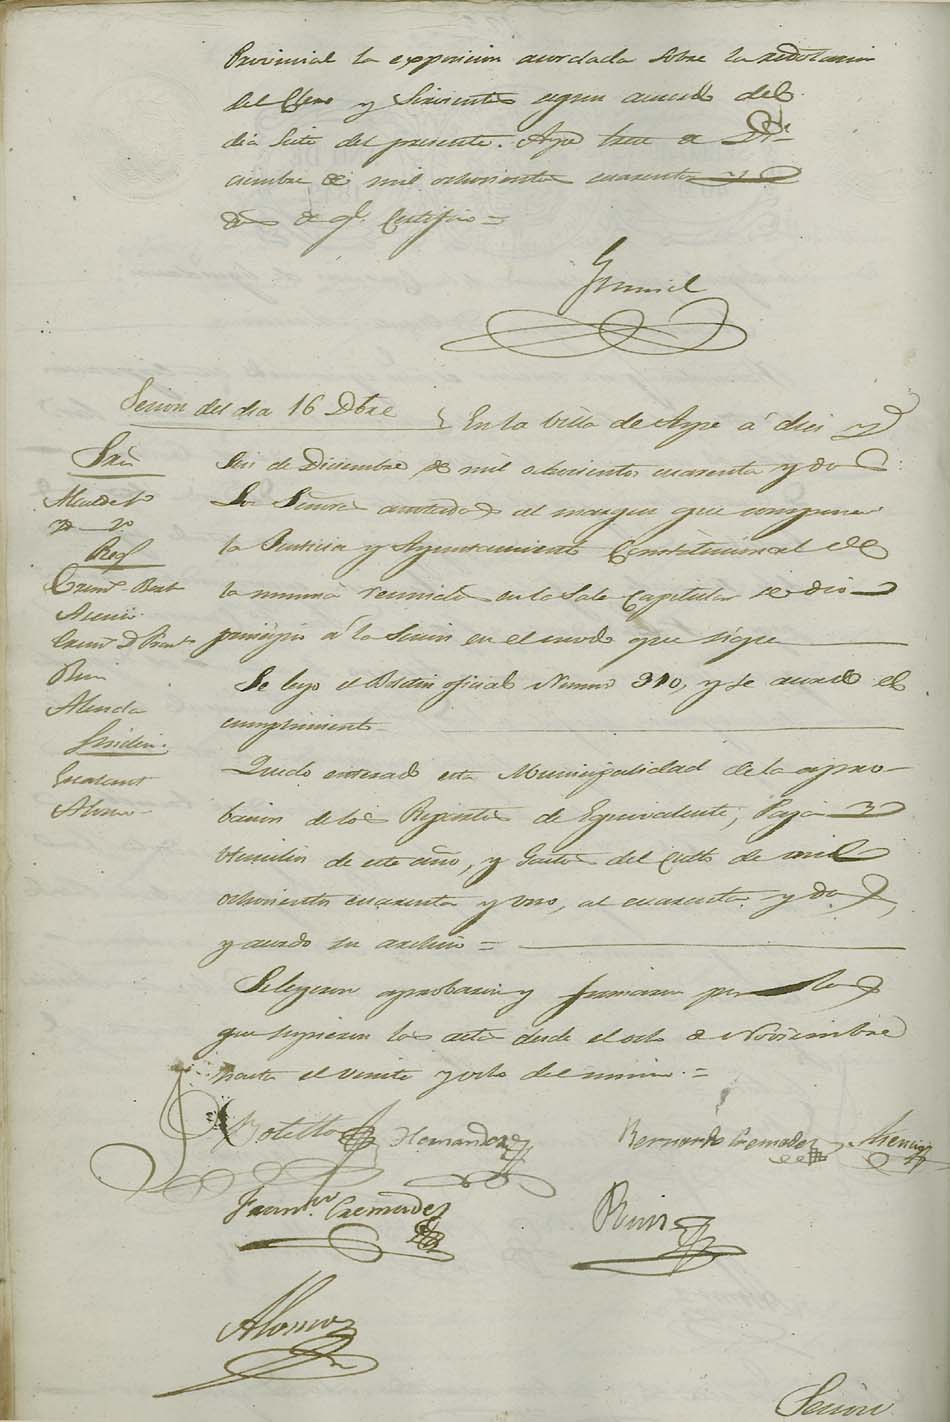 Provincial la exposicion acordada sobre la redotacion
del Clero y Sirvientes segun acuerdo del
dia siete del presente. Aspe trece de Di-
ciembre de mil ochocientos cuarenta y
dos de q.e Certifico =
Sesion del dia 16 Dbre
En la Villa de Aspe á diez y
seis de Diciembre de mil ochocientos cuarenta y dos
Los Señores anotados al margen que componen
la Justicia y Ayuntamiento Constitucional de
la misma reunidos en la Sala Capitular se dio
principio á la Sesion en el modo que sigue
Sres
Alcalde 1º
Yd 2º
Reg
Crem.s Bern.
Asencio
Crem.s D Fran.co
Ruiz
Almodo
Sindicos
Alonso
Se leyo el Boletin oficial Numro 310, y se acordó el
cumplimiento
Quedo enterado esta Municipalidad de la apro-
bacion de los Repartos de Equivalente, Paja y
Utensilios de este año, y Gastos del Culto de mil
ochocientos cuarenta y uno, al cuarenta y dos,
y acordo su archivo =
Se leyeron aprobaron y firmaron por los
que supieron las actas desde el ocho de Noviembre
hasta el veinte y ocho del mismo =
Botella
Hernandez
Bernardo Cremades
Asencio
Fran.co Cremades
Ruiz
Alonso
Sesion